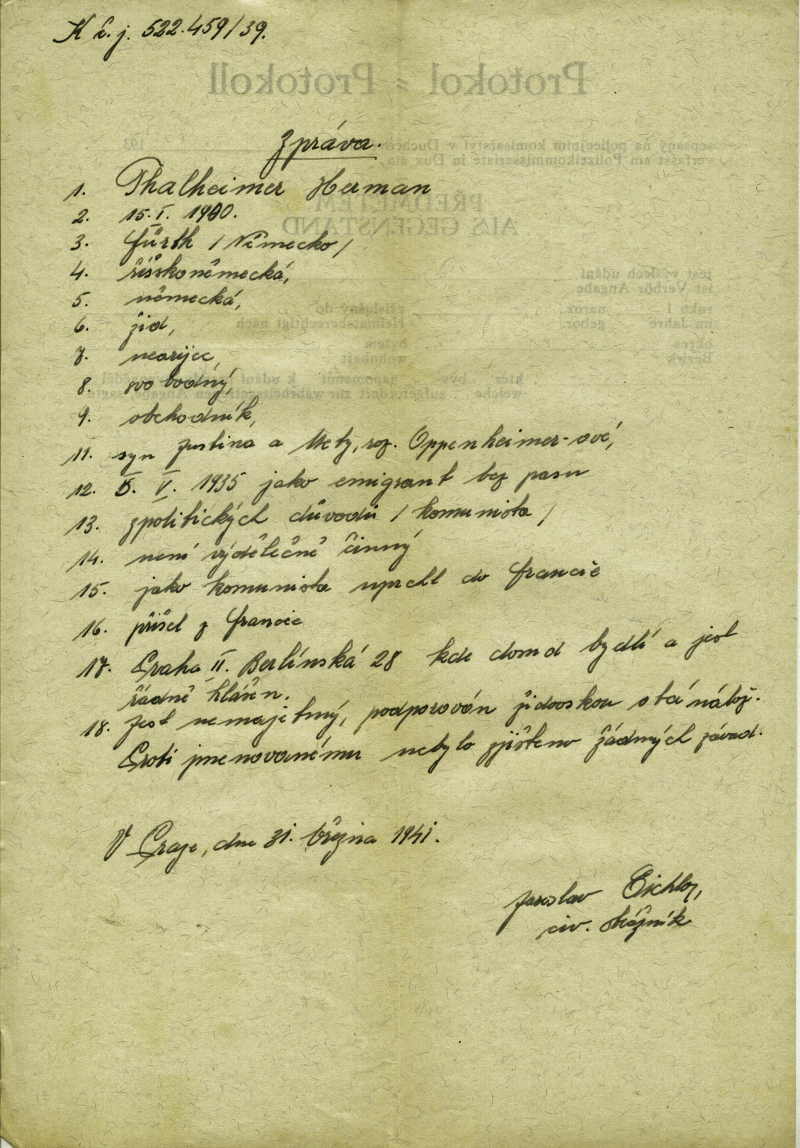 K č. j. 522.459/39.
Zpráva.
1. Thalheimer Herman
2. 15. I. 1900.
3. Fürth / Německo /
4. říšskoněmecká,
5. německá,
6. žid,
7. nearijec,
8. svobodný,
9. obchodník,
11. syn Justina a Mety, roz. Oppenheimer-ové,
12. 5. V. 1935 jako emigrant bez pasu
13. zpolitických důvodů / komunista /
14. není výdělečně činný
15. jako komunista uprchl do Francie
16. přišel z Francie
17. Praha II. Berlínská 28 kde dosud bydlí a jest
řádně hlášen.
18. Jest nemajetný, podporován židovskou nábož.
Proti jmenovanému nebylo zjištěno žádných závad.
V Praze, dne 31. března 1941.
Jaroslav
civ. strážník
Protokol = Protokoll
sepsaný na policejním komisařství v Duchcově 193
verfasst am Polizeikommissariate in Dux am
PŘEDMĚTEM
ALS GEGENSTAND
jest výslech udání
ist Verhör Angabe
roku 1 naroz. příslušný do
im Jahre gebor. Heimatsberechtigt nach
okres bytem
Bezirk wohnhaft